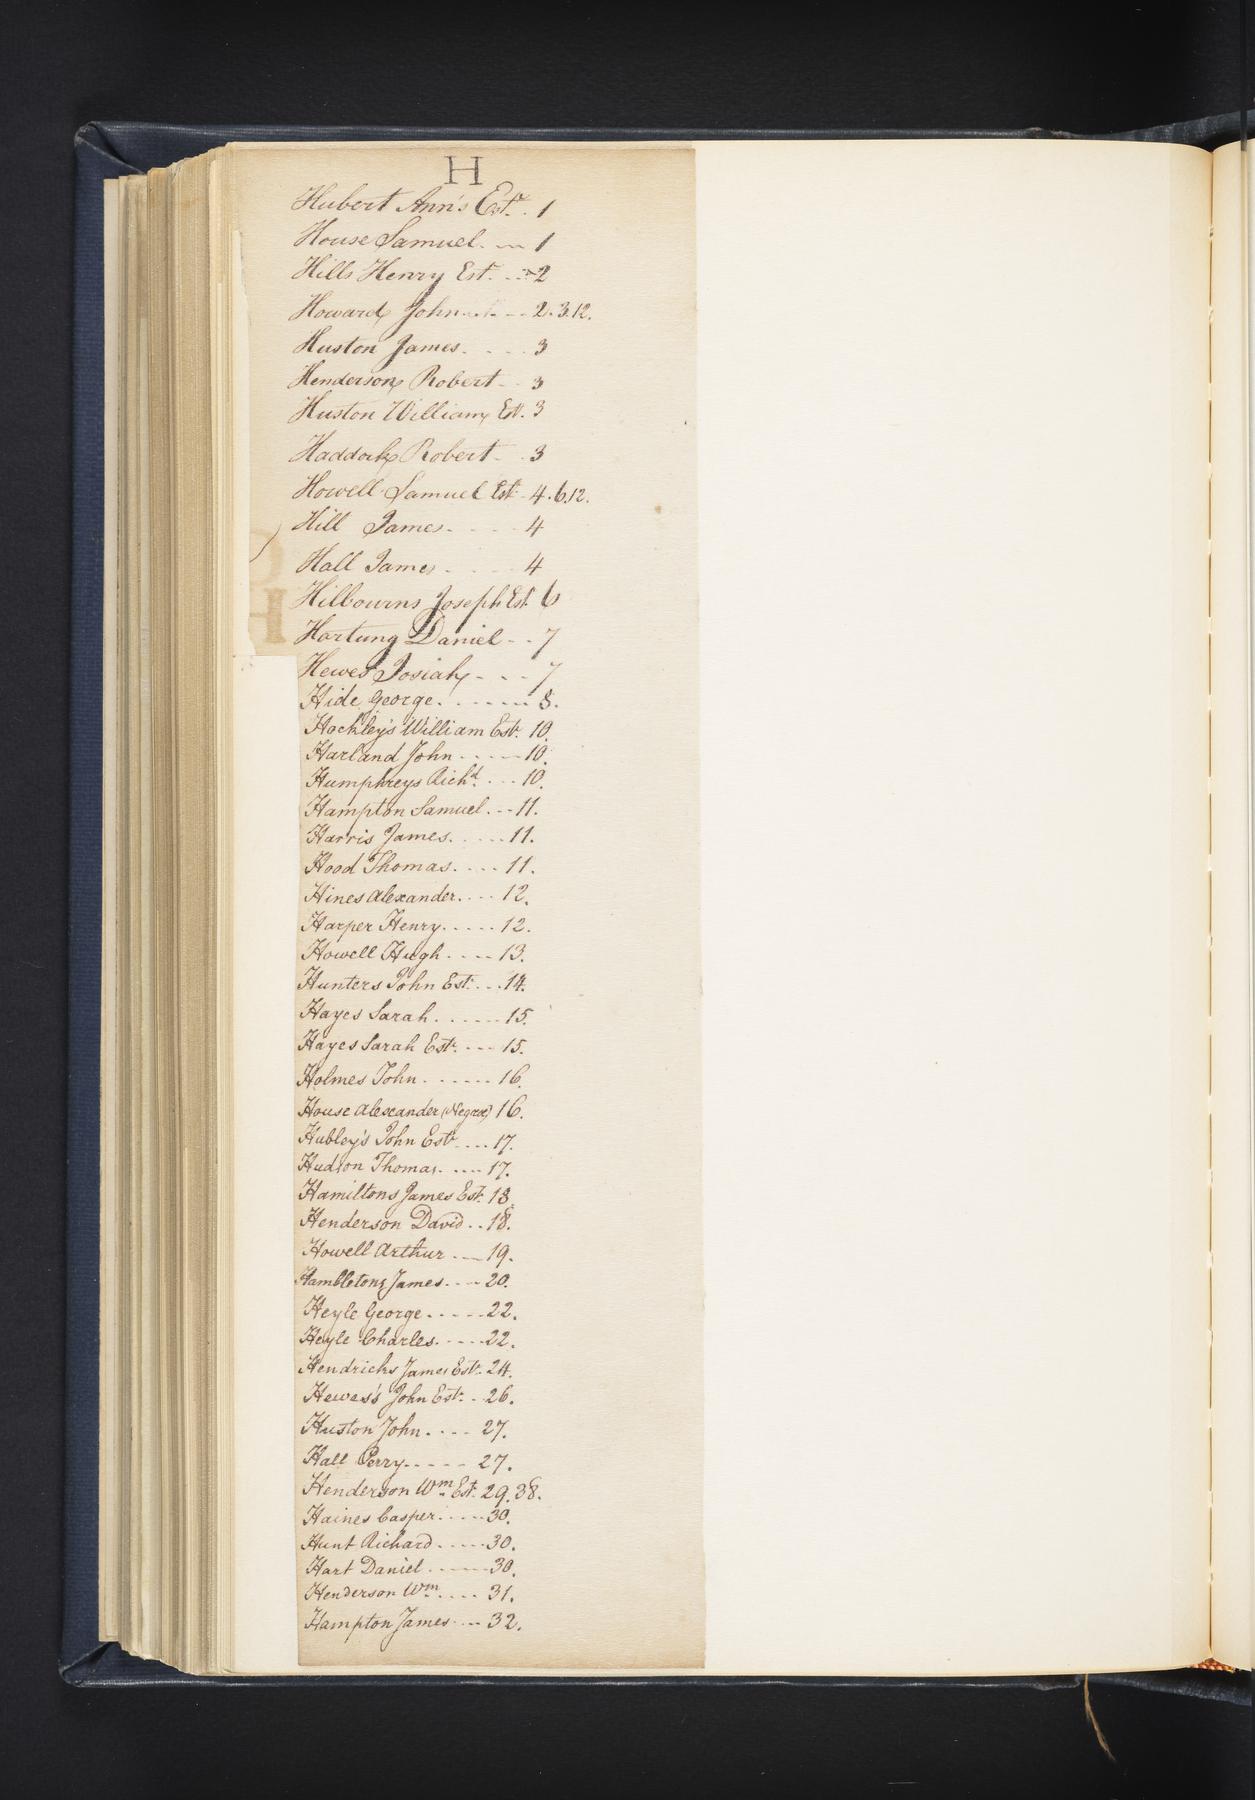 H
Hubert Ann's Est. . 1
House Samuel. -- 1
Hills Henry Est. ... 2
Howard John. . . . -- 2. 3. 12.
Huston James. . . . . 3
Henderson Robert - . 3
Huston William Est. 3
Haddock Robert - . 3
Howell Samuel Est - 4. 6. 12.
Hill James - . . . . 4
Hall James . . . . . 4
Hilbourns Joseph Est. 6
Hartung Daniel - - 7
Hewes Josiah - - - 7
Hide George. . . . . . . . 8.
Hockley's William Est. 10.
Harland John . . . . . 10.
Humphreys Richd. . . . 10.
Hampton Samuel . . . 11.
Harris James. . . . . . 11.
Hood Thomas. . . . . 11.
Hines Alexander. . . . . 12.
Harper Henry. . . . . . 12.
Howell Hugh . . . . . 13.
Hunters John Est. . . . 14.
Hayes Sarah . . . . . . . 15.
Hayes Sarah Est. . . . . 15.
Holmes John . . . . . . . 16.
House Alexander (Negroe) 16.
Hubley's John Est . . . . 17.
Hudson Thomas. . . . . 17.
Hamiltons James Est. 18.
Henderson David . . 18.
Howell Arthur . . . 19.
Hambletons James. . . . 20.
Heyle George . . . . . . 22.
Heyle Charles. . . . . . 22.
Hendricks James Est. . 24.
Hewes's John Est. . . 26.
Huston John. . . . . 27.
Hall Perry. . . . . . 27.
Henderson Wm Est. 29. 38.
Haines Casper. . . . . 30.
Hunt Richard . . . . . 30.
Hart Daniel . . . . . . 30.
Henderson Wm. . . . . 31.
Hampton James . . . 32.